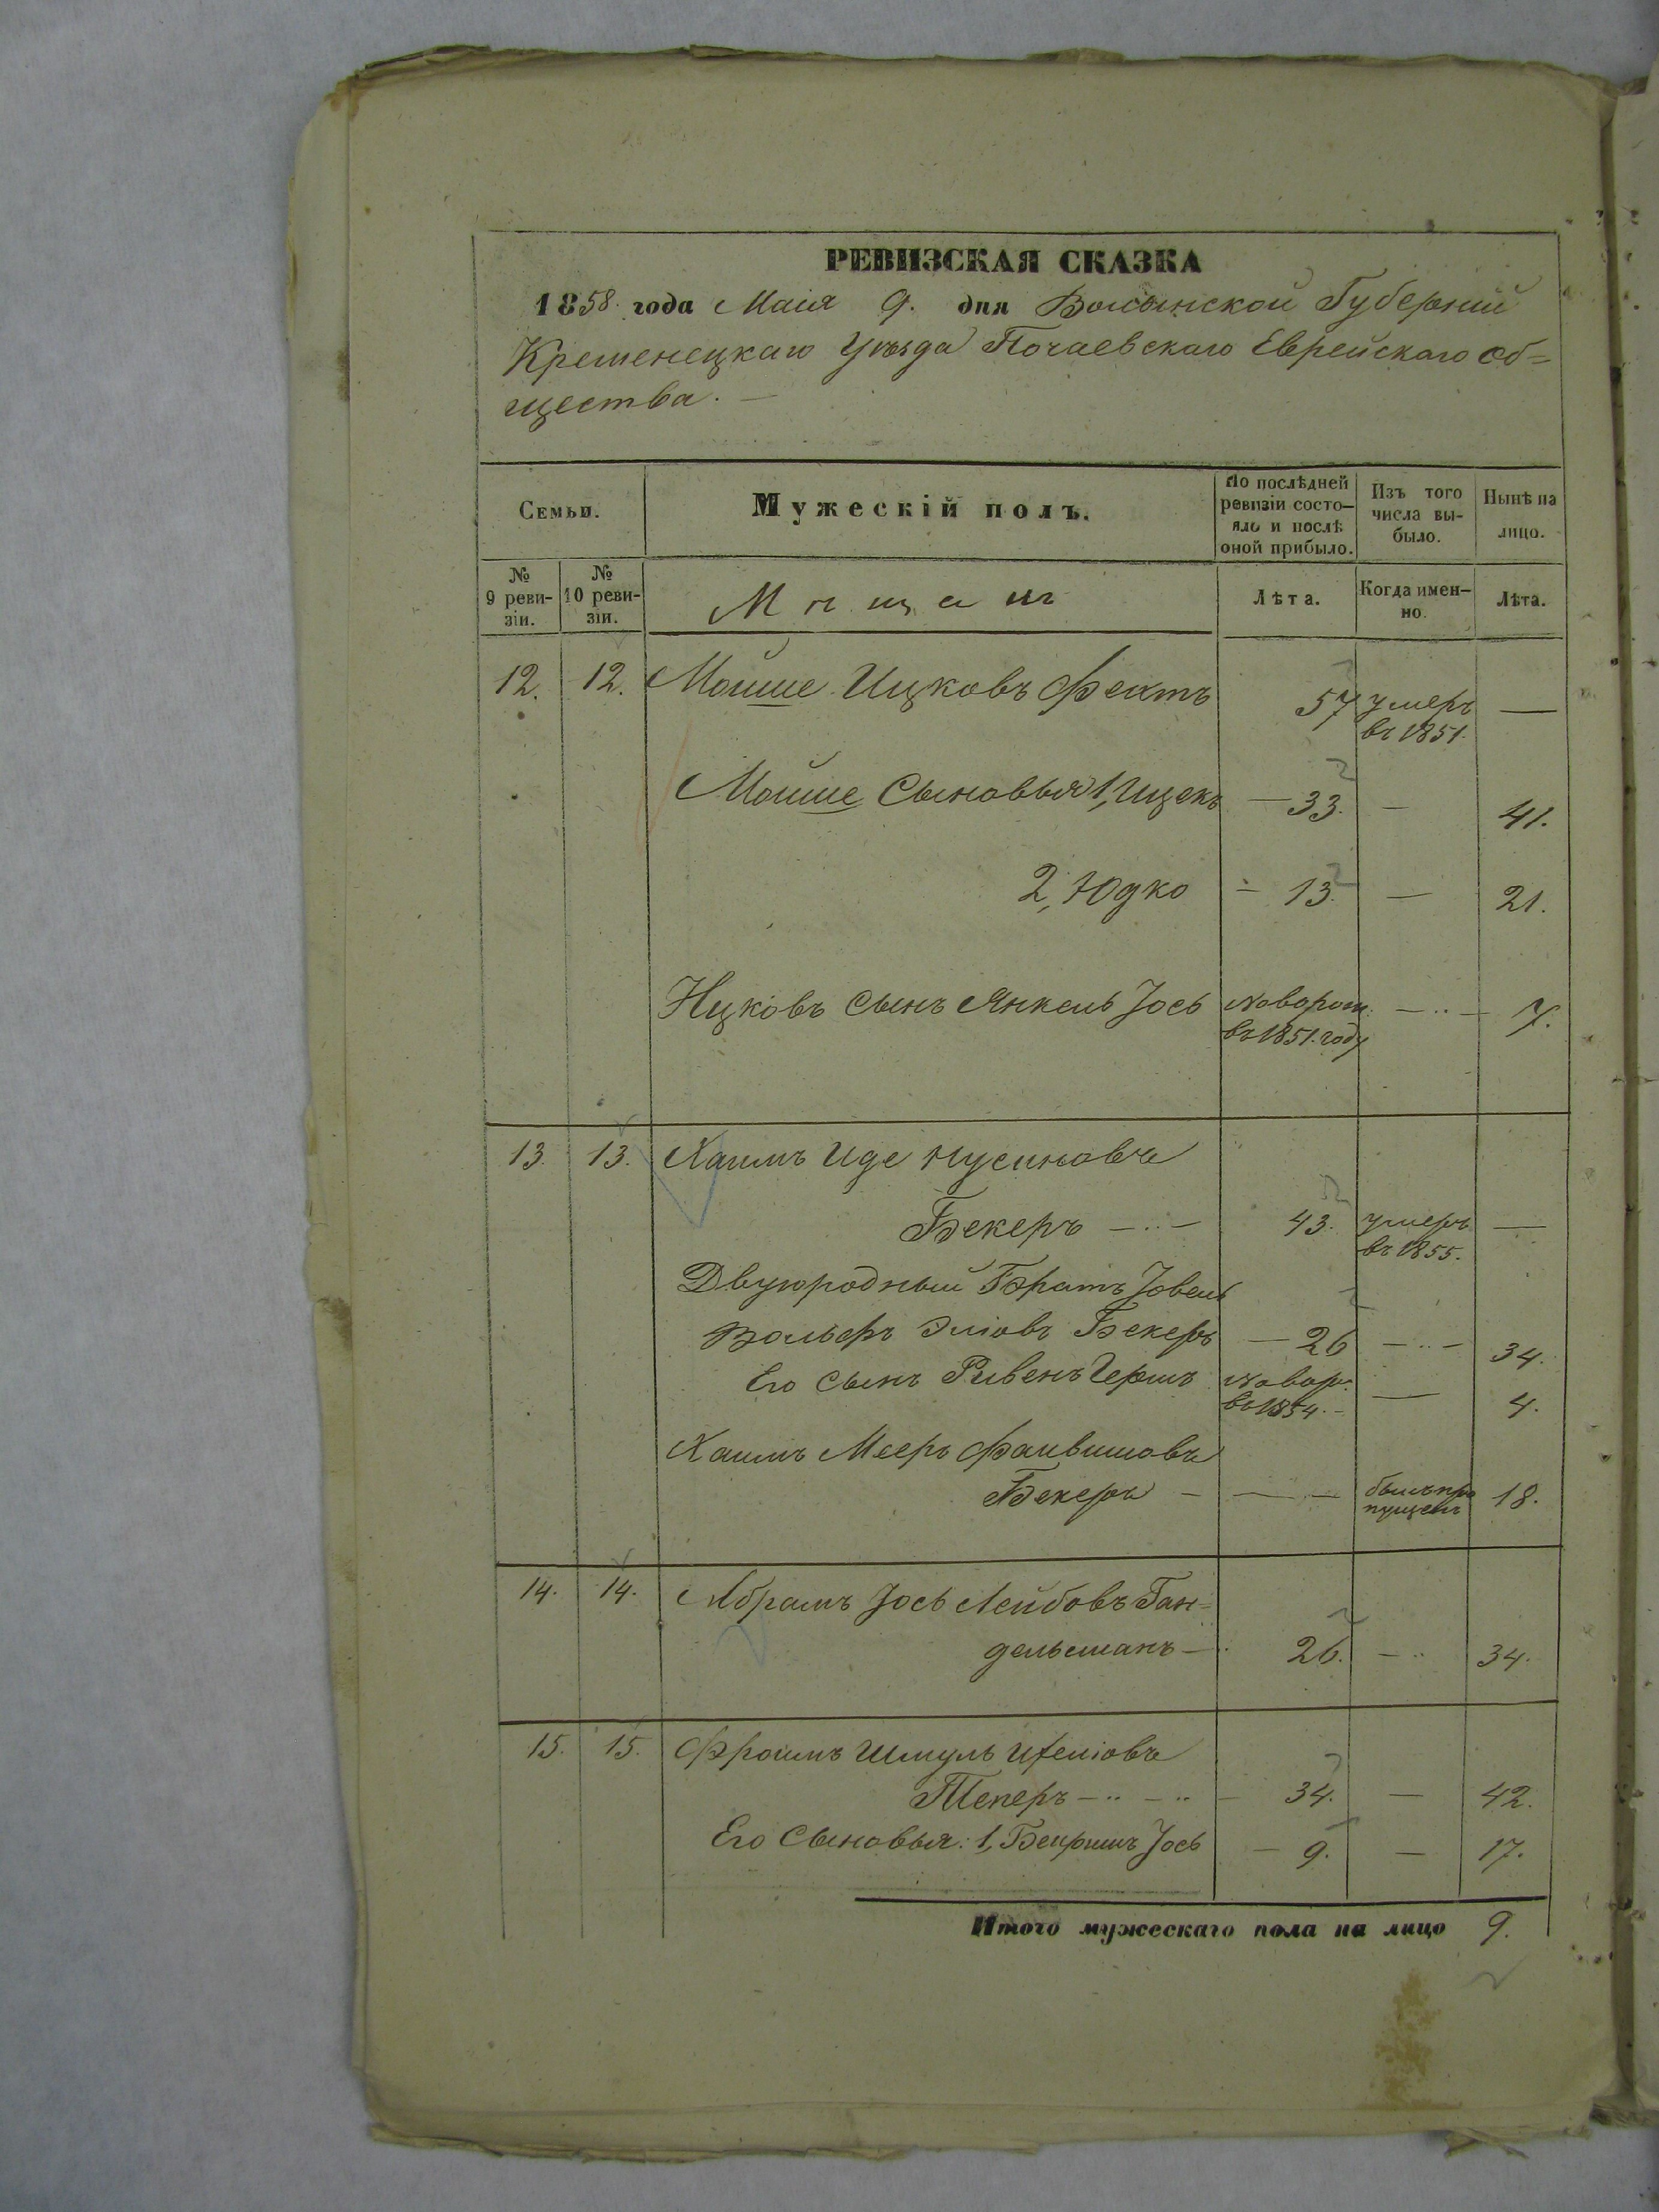 РЕВИЗСКАЯ СКАЗКА
1858 года Маія 9. дня Волынской Губерніи
Кременецкаго Уѣзда Почаевскаго Еврейскаго об=
щества. —
Семьи.
Мужескій полъ.
По послѣдней ревизіи состо-
яло и послѣ оной прибыло.
Изъ того числа вы-
было.
Нынѣ на лицо.
№ 9 реви-
зіи.
№ 10 реви-
зіи.
Мѣщанѣ
Лѣта.
Когда имен-
но.
Лѣта.
12. 12. Мойше Ицковъ Фектъ 57 умеръ —
въ 1851.
Мойше Сыновья 1, Ицекъ — 33. — 41.
2, Юдко - 13. — 21.
Ицковъ Сынъ Янкель Іось новорож. — 7.
въ 1851. году
13. 13. Хаимъ Иде Нусиновъ
Бекеръ — 43. умеръ —
въ 1855.
Двуюродный Братъ Іовель
Вольфъ Эліовъ Бекеръ — 26 — 34.
Его Сынъ Ривенъ Гершъ новор. — 4.
въ 1854. -
Хаимъ Мееръ Файвишовъ
Бекеръ - — — былъ про 18.
пущенъ
14. 14. Абрамъ Іось Лейбовъ Ган=
дельманъ — 26. — 34.
15. 15. Фроимъ Шмуль
Теперъ — 34. — 42.
Его Сыновья: 1, Бенришъ Іось — 9. — 17.
Итого мужескаго пола на лицо 9.